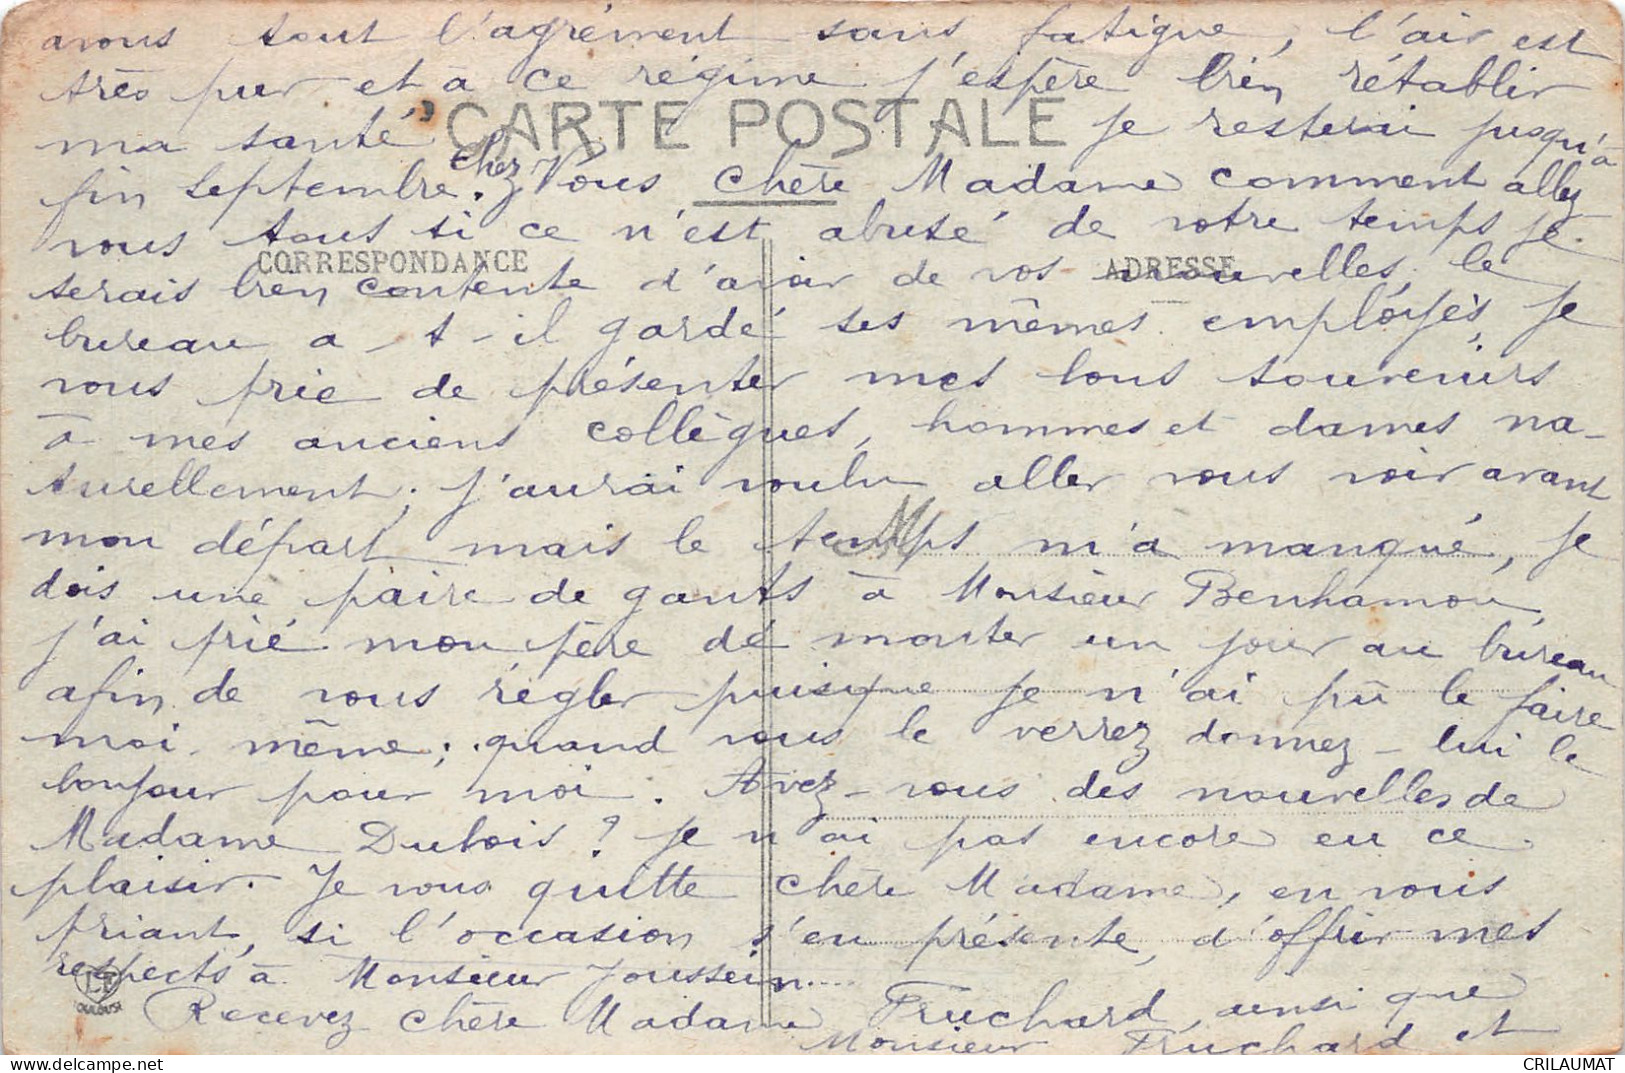 avons tout l'agrément sans fatigue, l'air est
très pur et à ce régime j'espère bien rétablir
CARTE POSTALE
ma santé je resterai jusqu'à
fin septembre. Chez Vous Chère Madame comment allez
vous tous si ce n'est abusé de votre temps je
CORRESPONDANCE ADRESSE
serais bien contente d'avoir de vos nouvelles, le
bureau a-t-il gardé ses mêmes employés, je
vous prie de présenter mes bons souvenirs
à mes anciens collègues, hommes et dames na-
turellement; j'aurai voulu aller vous voir avant
mon départ mais le temps m'a manqué, je
dois une paire de gants à Monsieur Benhamou,
j'ai prié mon père de monter un jour au bureau
afin de vous régler puisque je n'ai pû le faire
moi même; quand vous le verrez donnez-lui le
bonjour pour moi. Avez-vous des nouvelles de
Madame Dubois? je n'ai pas encore eu ce
plaisir. Je vous quitte chère Madame, en vous
priant, si l'occasion s'en présente, d'offrir mes
respects à Monsieur Joussein.
LF
TOULOUSE
Recevez chère Madame Fruchard, ainsi que
Monsieur Fruchard et
delcampe.net
CRILAUMAT